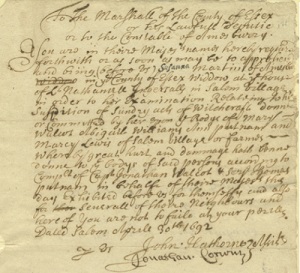 To The Marshall of the County of Essex
or his Lawfull Deputie
or to the Constable of Amesbury
You are in theire Majests names hereby required
forthwith or as soon as may be to apprehend
and bring before us Susanna Martin of Amesbury
in ye County of Essex Widdow at ye house
of Lt Nathaniell Ingersalls in Salem Village
in order to her Examination Relating to high
Suspition of Sundry acts of Witchcraft donne or
committed by her upon ye Bodys of Mary
Walcot Abigaill Williams Ann putnam and
Marcy Lewis of Salem Village or farmes
Whereby great hurt and dammage hath beene
donne to ye bodys of said persons according to
Complt of Capt Jonathan Walcot & Serg Thomas
putnam in behalfe of theire Majests this
day Exhibited before us for themselfs and also
for Severall of theire Neighbours and
here of You are not to faile at your perils
Dated Salem Aprill 30th 1692
John Hathorne
Jonathan Corwin
Assists